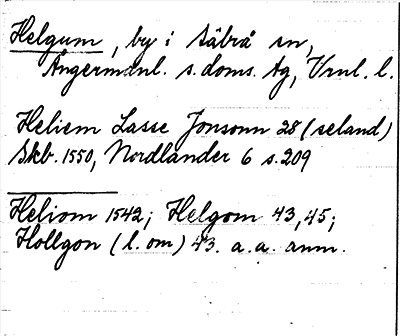 Helgum, by i Säbrå sn,
Ångermanl. s. doms. tg, Vrnl. l.
Heliem Lasse Jonsonn 28 (seland)
Skb. 1550, Nordlander 6 s. 209
Heliom 1542; Helgom 43, 45;
Hollgon (l. om) 43. a.a. anm.